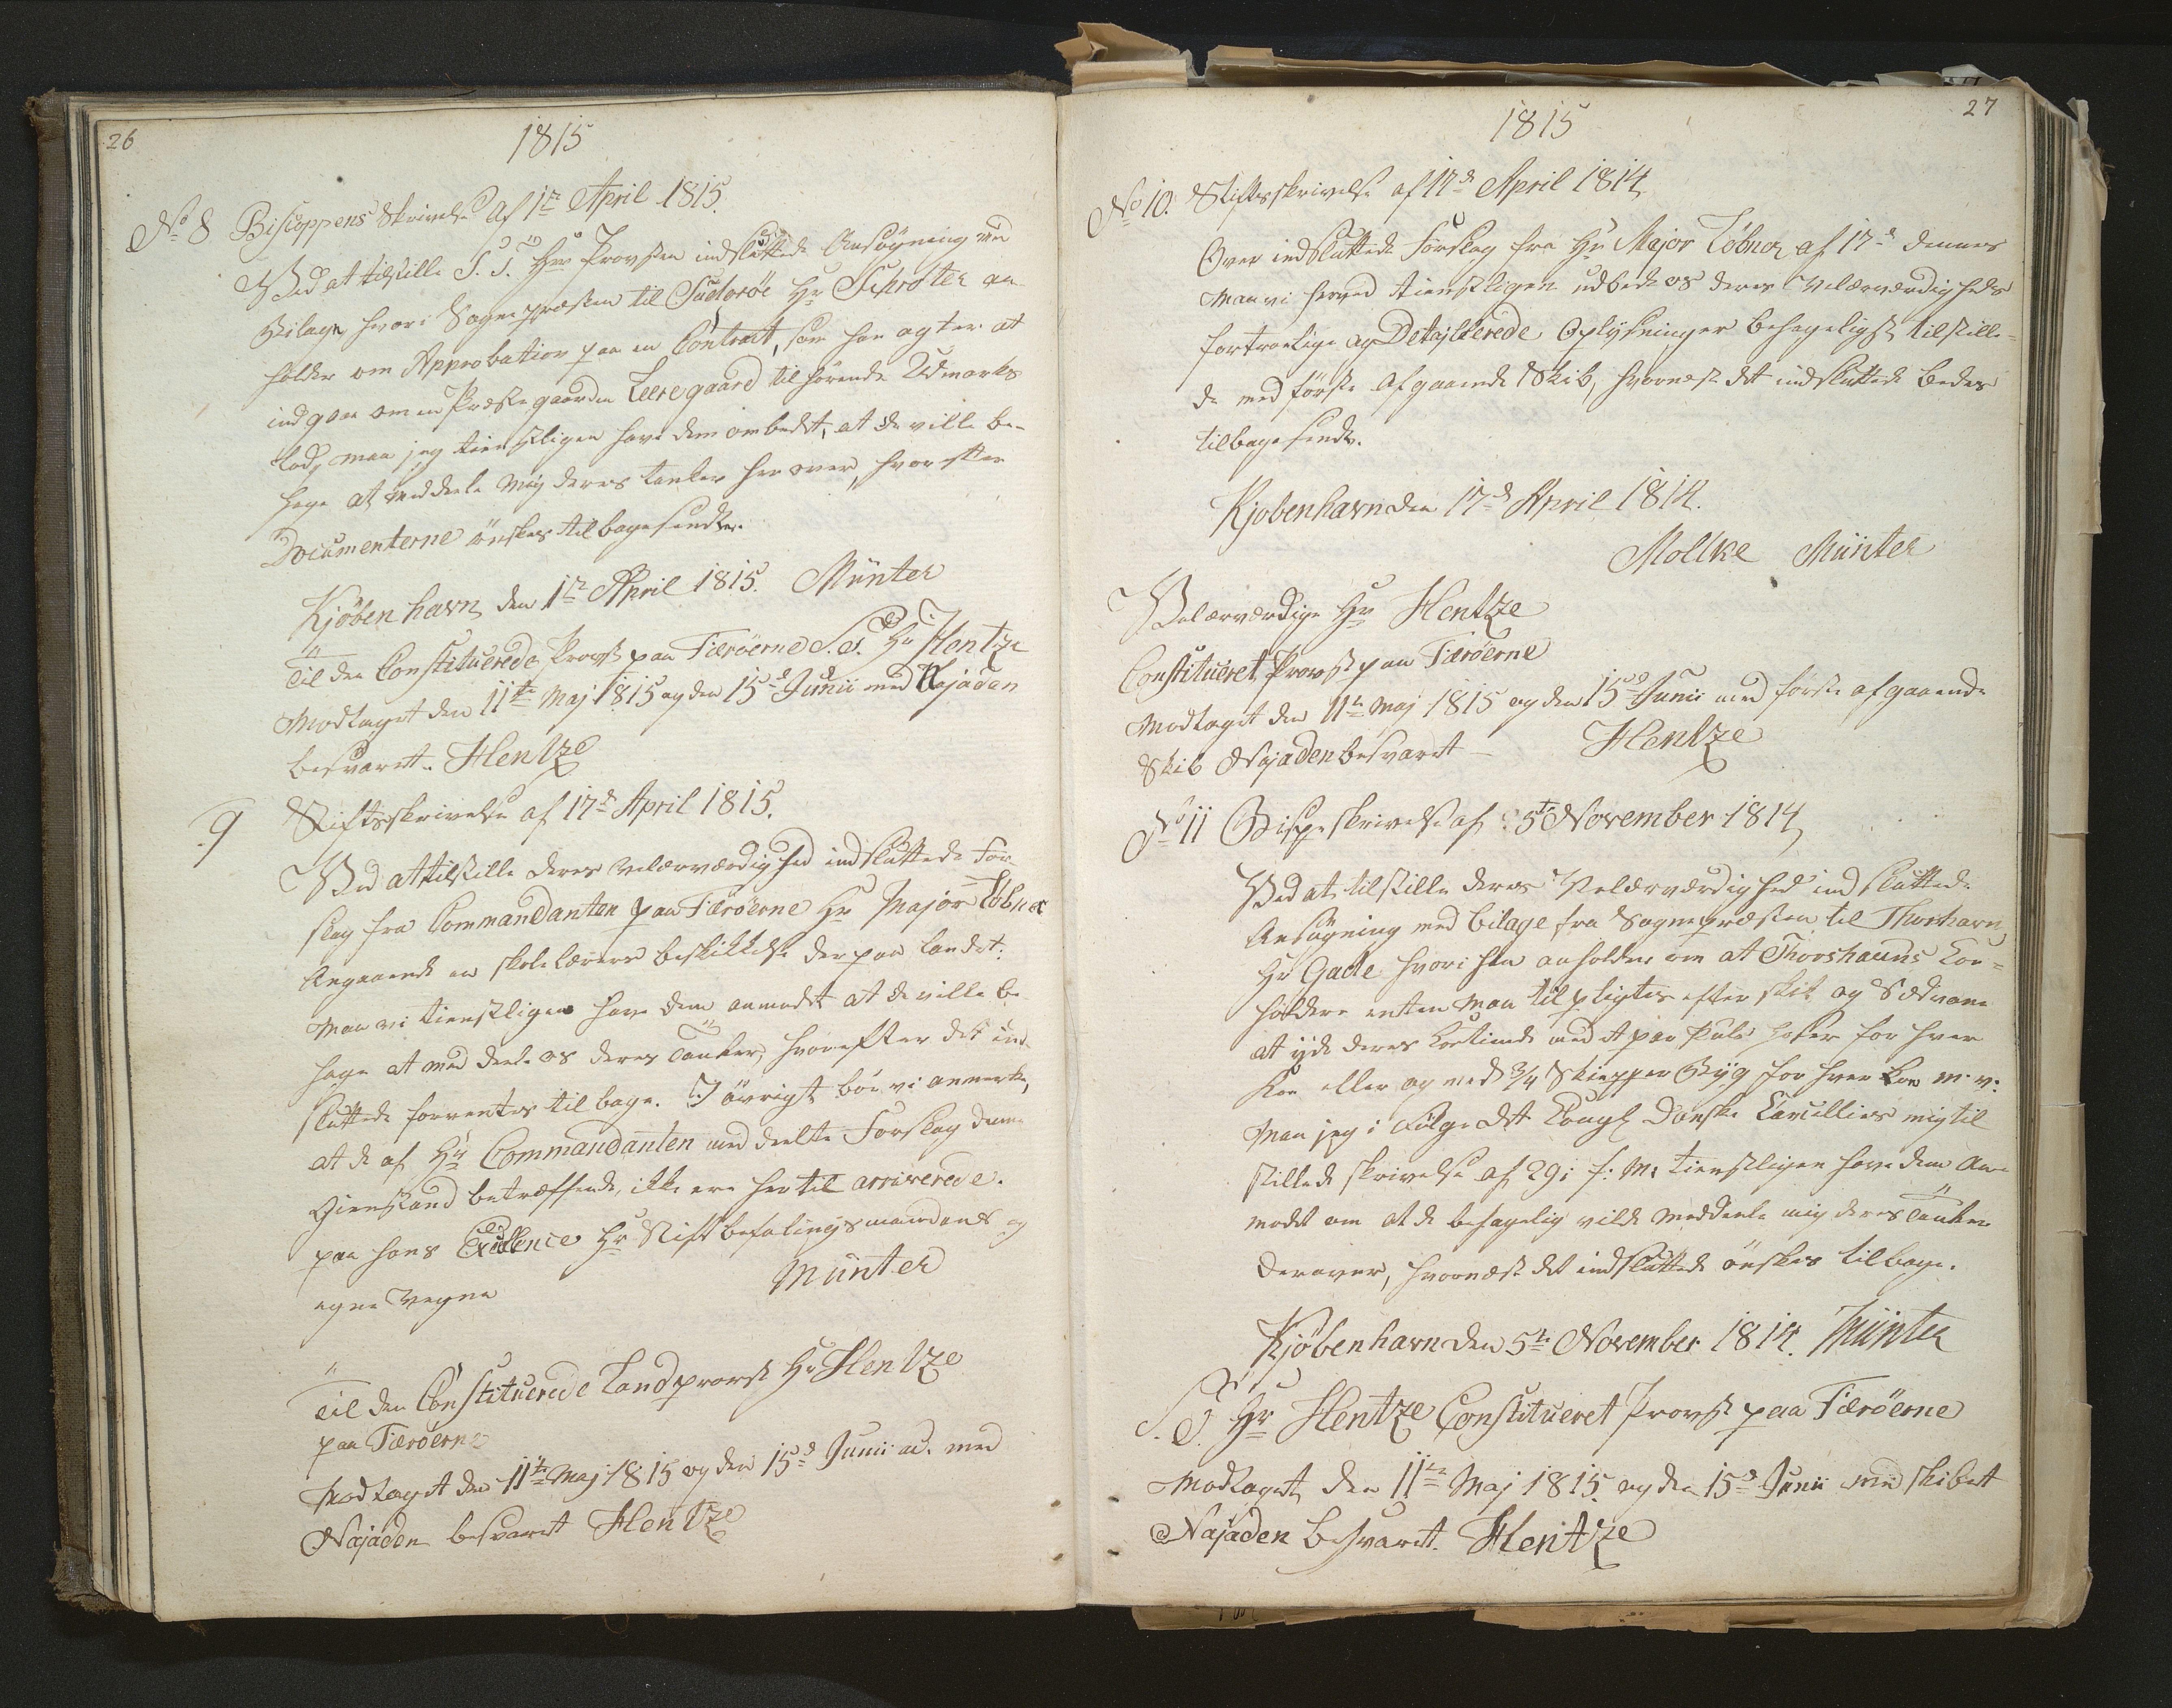 26
1815
No 8 Biscoppens Skrivelse af 1te April 1815.
Ved at tilstille S. T. Hrr Provsten indsluttede Ansøgning med
Bilage, hvori Sognepræsten til Suderøe Hr Schrøter an-
holder om Approbation paa en Contract, som han agter at
indgaae om en Præstegaarden Leeregaard tilhørende Udmarks
Lod, maa jeg tienstligen have dem ombedet, at de ville be-
hage at meddeele mig deres tanker herover, hvorefter
Documenterne ønskes tilbagesendte.
Kjøbenhavn den 1te April 1815. Münter
Til den Constituerede Provst paa Færøerne S. T. Hr Hentze
Modtaget den 11te Maj 1815 og den 15d Junii med Najaden
besvaret. Hentze
9 Stiftsskrivelse af 17d April 1815.
Ved at tilstille deres Velærværdighed indsluttede For-
slag fra Commandanten paa Færøerne Hr Major Løbner
Angaaende en skolelærers beskikkelse der paa Landet:
maa vi tienstligen have dem anmodet at de ville be-
hage at meddeele os deres Tanker, hvorefter det ind-
sluttede forventes tilbage. I øvrigt bør vi anmerke,
at de af Hr Commandanten meddeelte Forslag denne
Gienstand betræffende, ikke ere hertil arriverede.
paa hans Excellence Hr Stiftbefalingsmandens og
egne Vegne Münter
Til den Constituerede Landprovst Hr Hentze
paa Færøerne
Modtaget den 11te Maj 1815 og den 15d Junii med
Najaden besvaret Hentze
27
1815
No 10. Stiftsskrivelse af 17d April 1814
Over indsluttede Forslag fra Hr Major Løbner af 17d
maa vi herved tienstligen udbede os deres Velærværdigheds
fortroelige og Detaillerede Oplysninger behageligst tilstille-
de med første afgaaende Skib, hvornæst det indsluttede bedes
tilbagesendt.
Kjøbenhavn den 17d April 1814.
Moltke Münter
Velærværdige Hr Hentze
Constitueret Provst paa Færøerne
Modtaget den 11te Maj 1815 og den 15d Junii med første afgaaende
Skib Najaden besvaret — Hentze
No 11 Bispeskrivelse af 5te November 1814
Ved at tilstille deres Velærværdighed indsluttede
Ansøgning med bilage fra Sognepræsten til Thorshavn
Hr Gade hvori han anholder om at Thorshauns Koe-
holdere enten maa tilpligtes efter skik og Sædvane
at yde deres Koetiende med et par Huser for hver
Koe eller og med 3/4 Skiepper Byg for hver Koe m. v:
maa jeg i Følge det Kongl Danske Cancellies mig til
stillede skrivelse af 29: f: M: tienstligen have dem An-
modet om at de behagelig vilde meddeele mig deres Tanker
derover, hvornæst det indsluttede ønskes tilbage.
Kjøbenhavn den 5te November 1814. Münter
S. T. Hr Hentze Constitueret Provst paa Færøerne
Modtaget den 11te Maj 1815 og den 15d Junii med skibet
Najaden besvaret. Hentze